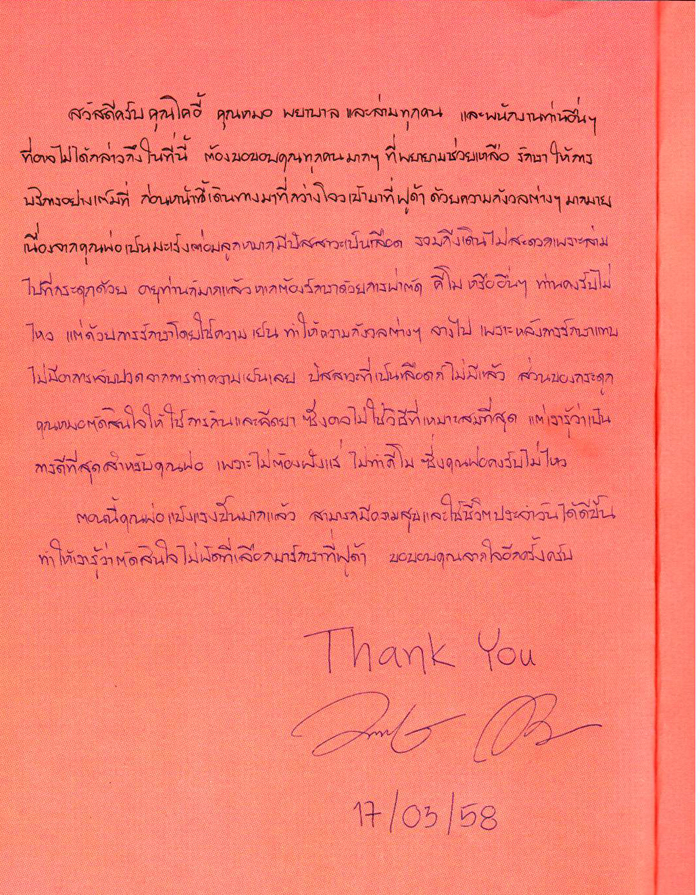 สวัสดีครับ คุณไคอี้ คุณหมอ พยาบาล และล่ามทุกคน และพนักงานท่านอื่นๆ
ที่อาจไม่ได้กล่าวถึงในที่นี้ ต้องขอขอบคุณทุกคนมากๆ ที่พยายามช่วยเหลือ รักษา ให้การ
บริการอย่างเต็มที่ ก่อนหน้านี้เดินทางมาที่กว่างโจวเข้ามาที่ฟูด้า ด้วยความกังวลต่างๆ มากมาย
เนื่องจากคุณพ่อเป็นมะเร็งต่อมลูกหมากมีปัสสาวะเป็นเลือด รวมถึงเดินไม่สะดวกเพราะลาม
ไปที่กระดูกด้วย อายุท่านก็มากแล้วหากต้องรักษาด้วยการผ่าตัด คีโม หรืออื่นๆ ท่านคงรับไม่
ไหว แต่ด้วยการรักษาโดยใช้ความเย็น ทำให้ความกังวลต่างๆ จางไป เพราะหลังการรักษาแทบ
ไม่มีอาการเจ็บปวดจากการทำความเย็นเลย ปัสสาวะที่เป็นเลือดก็ไม่มีแล้ว ส่วนของกระดูก
คุณหมอตัดสินใจให้ใช้การกินและฉีดยา ซึ่งอาจไม่ใช่วิธีที่เหมาะสมที่สุด แต่เรารู้ว่าเป็น
การดีที่สุดสำหรับคุณพ่อ เพราะไม่ต้องฝังแร่ ไม่ทำคีโม ซึ่งคุณพ่อคงรับไม่ไหว
ตอนนี้คุณพ่อแข็งแรงขึ้นมากแล้ว สามารถมีความสุขและใช้ชีวิตประจำวันได้ดีขึ้น
ทำให้เรารู้ว่าตัดสินใจไม่ผิดที่เลือกมารักษาที่ฟูด้า ขอขอบคุณจากใจอีกครั้งครับ
Thank You
17/03/58